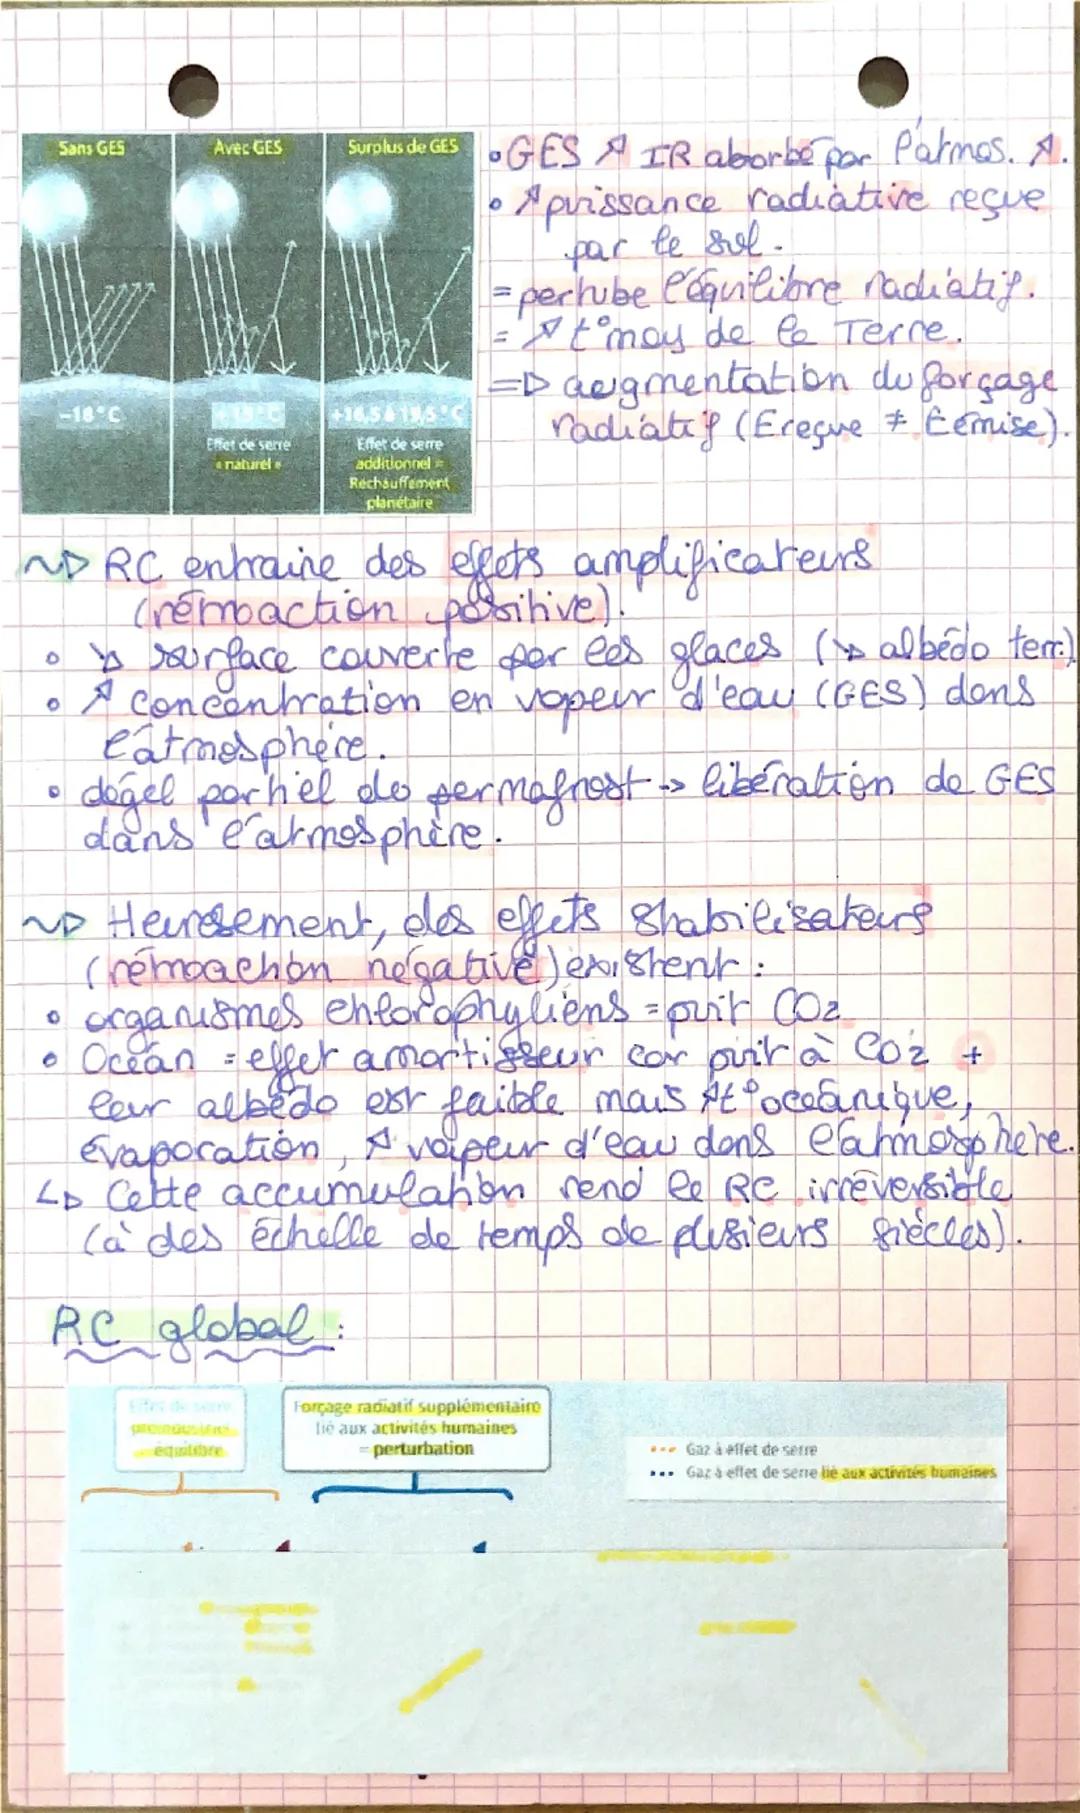 Sans GES
Avec GES
Surplus de GES
-18°C
+15°C
+16,5 à 19,5°C
Effet de serre
« naturel »
Effet de serre
additionnel =
Réchauffement
planétaire
• GES ↗ IR aborbé par l'atmos. ↗.
• ↗ puissance radiative reçue
par le sol.
= pertube l'équilibre radiatif.
= ↗ t° moy de la Terre.
=> augmentation du forçage
radiatif (E reçue ≠ E émise).
~> RC entraine des effets amplificateurs
(rémoaction positive).
• ↘ surface couverte par les glaces (↘ albédo terr.)
• ↗ concentration en vapeur d'eau (GES) dans
l'atmosphère.
• dégel partiel du permafrost -> libération de GES
dans l'atmosphère.
~> Heuresement, des effets stabilisateurs
(rémoaction négative) existent :
• organismes chlorophyliens = puit CO2
• Océan = effet amortisseur car puit à CO2 +
leur albédo est faible mais ↗ t° océanique,
évaporation, ↗ vapeur d'eau dans l'atmosphère.
↳ Cette accumulation rend le RC irréversible
(à des échelle de temps de plusieurs siècles).
RC global :
Effet de serre
préindustriel
équilibre
Forçage radiatif supplémentaire
lié aux activités humaines
= perturbation
Gaz à effet de serre
Gaz à effet de serre lié aux activités humaines